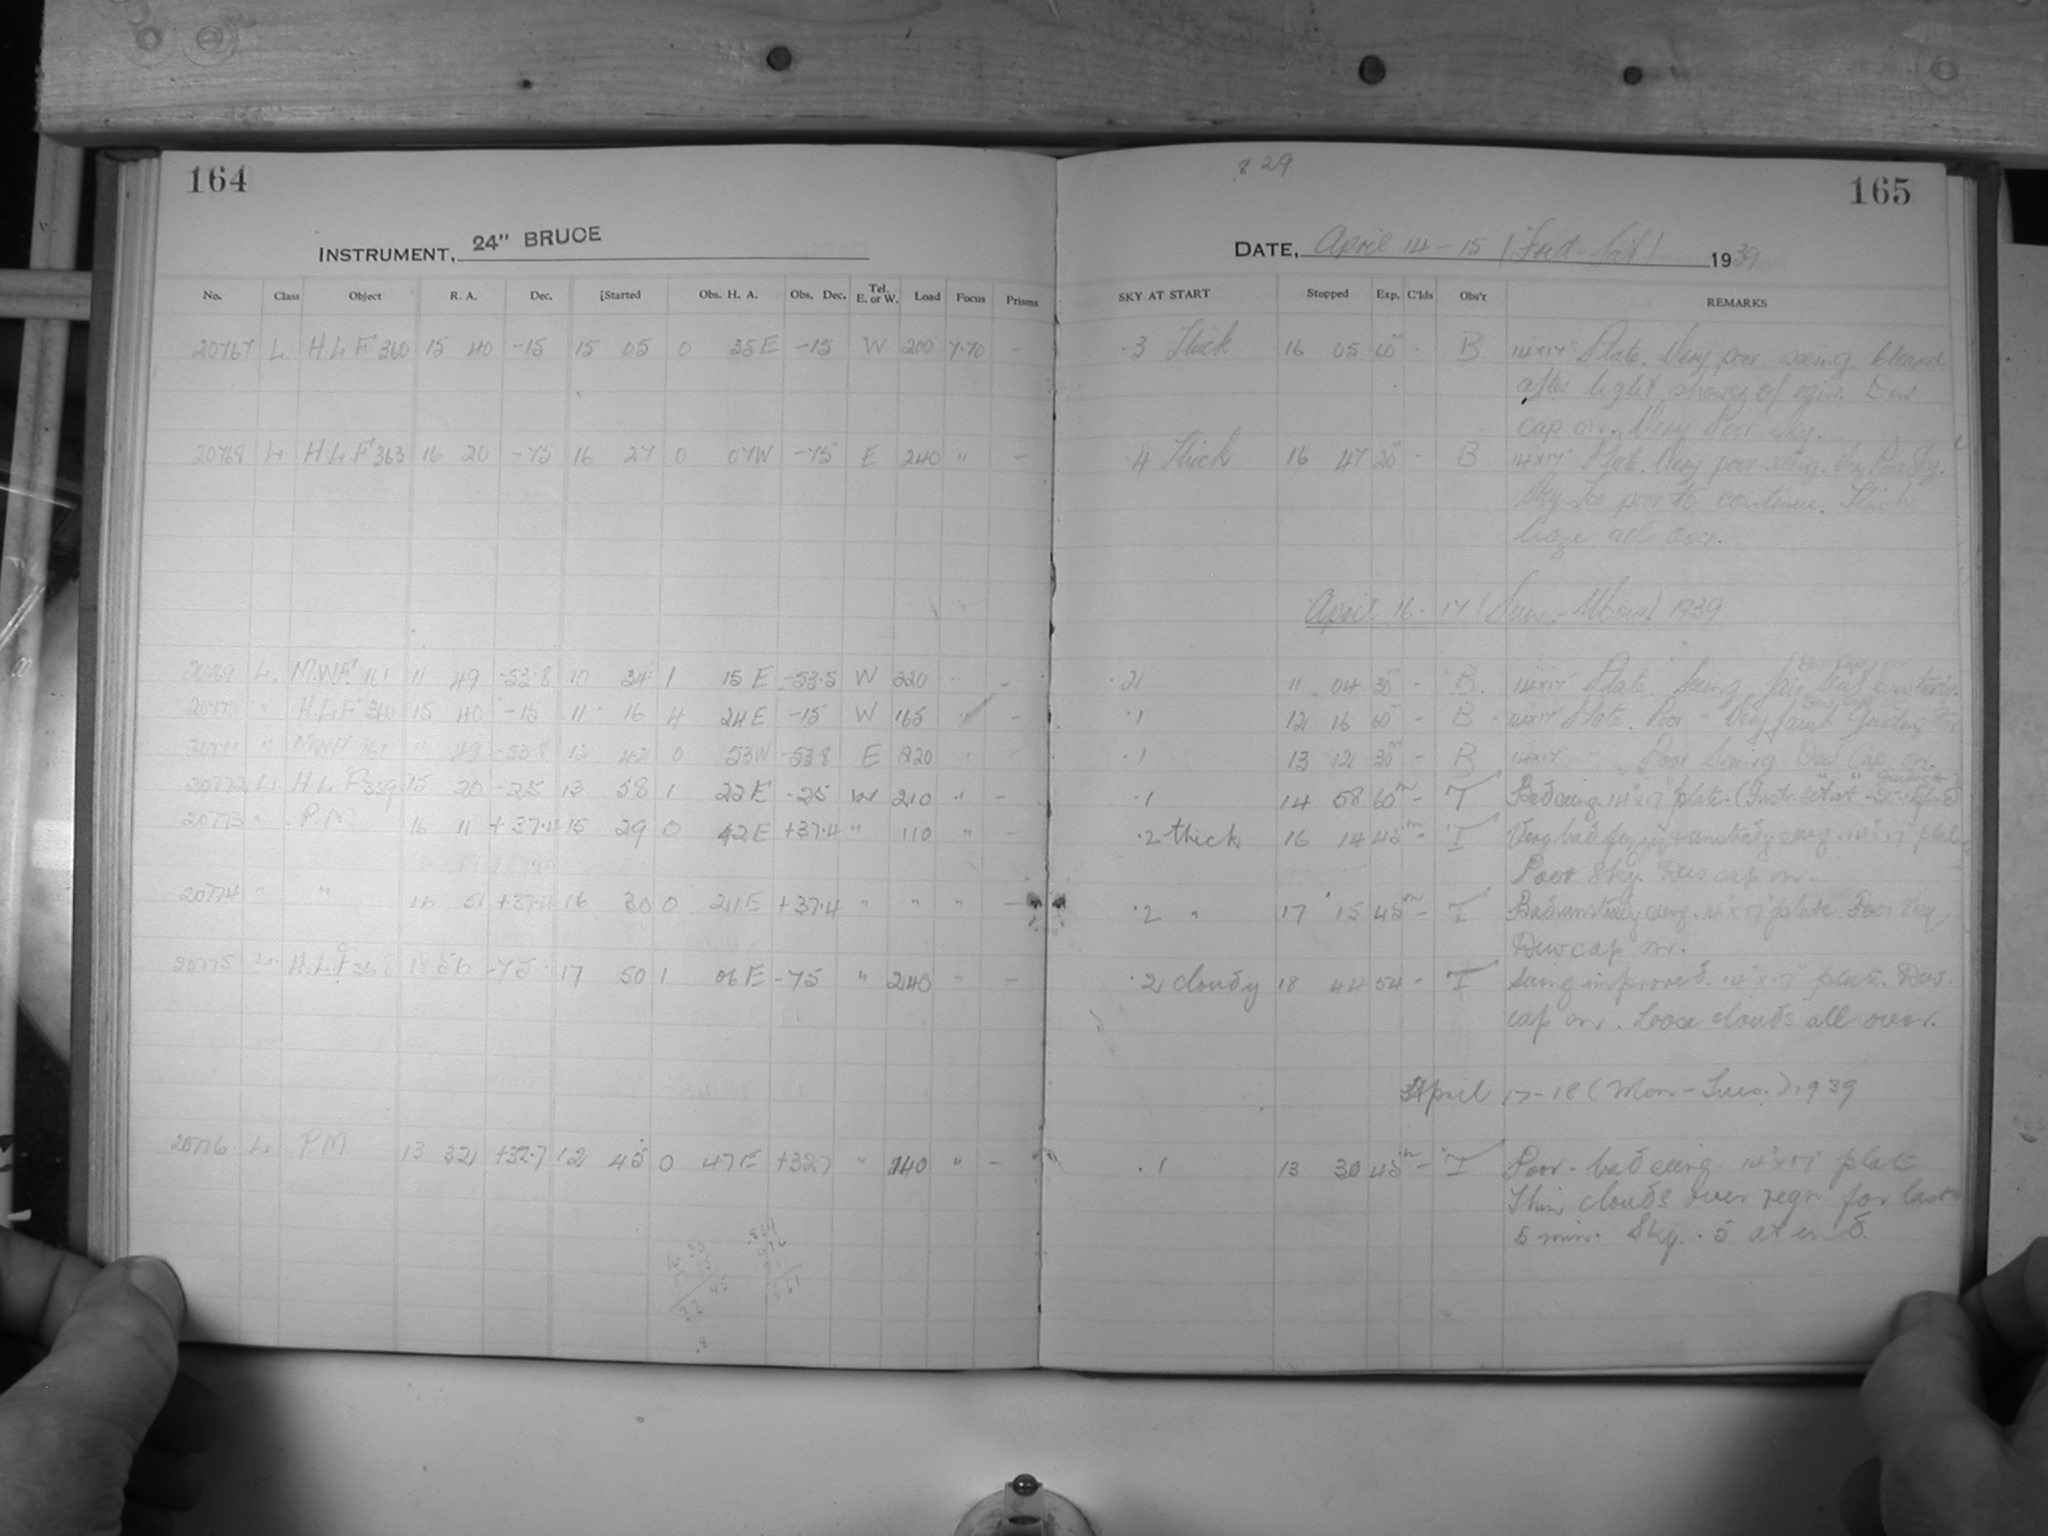 164
INSTRUMENT, 24" BRUCE
No. Class Object R. A. Dec. Started Obs. H. A. Obs. Dec. Tel. E. or W. Load Focus Prisms
20767 L. HLF 360 15 40 -15 15 05 0 35E -15 W 200 7.70 -
20768 L HLF 363 16 20 -75 16 27 0 07W -75 E 240 " -
20769 L. MWF 161 11 49 -53.8 10 34 1 15 E -53.5 W 220 " -
20770 " HLF 360 15 40 -15 11 16 4 24E -15 W 165 " -
20771 " MWF 161 11 49 -53.8 12 42 0 53W -53.8 E 220 "
20772 L. HLF 359 15 20 -25 13 58 1 22E -25 W 210 " -
20773 " PM 16 11 +37.4 15 29 0 42E +37.4 " 110 " -
20774 " " 16 51 +37.4 16 30 0 21E +37.4 " " " -
20775 L. HLF 368 18 56 -75 17 50 1 06E -75 " 240 " -
20776 L. PM 13 32 +32.7 12 45 0 47E +32.7 " 140 " -
829
165
DATE, April 14-15 (Frid-Sat) 1939
SKY AT START Stopped Exp. C'lds Obs'r REMARKS
.3 Thick 16 05 60 - B 14x17" Plate. Very poor seeing. Cleared
after light shower of rain. Dew
cap on. Very Poor sky.
.4 Thick 16 47 20 - B 14x17" Plate. Very poor seeing. Very Poor Sky.
Sky too poor to continue. Thick
haze all over.
April 16-17 (Sun-Mon) 1939
.2 11 04 30m - B. 14x17" Plate. Seeing fair
.1 12 16 60 - B 14x17" Plate. Poor - Very faint Guiding Star
.1 13 12 30m B 14x17 " Poor Seeing Dew Cap on.
.1 14 58 60m - T Bad seeing. 14"x17" plate.
.2 thick 16 14 45m - T Very bad unsteady seeing. 14"x17" plate
Poor Sky. Dew cap on.
.2 " 17 15 45m - T Bad unsteady seeing. 14"x17" plate. Poor Sky
Dew cap on.
.2 cloudy 18 44 54 - T Seeing improved. 14"x17" plate. Dew
cap on. Loose clouds all over.
April 17-18 (Mon-Tues.) 1939
.1 13 30 45m - T Poor - bad seeing. 14"x17" plate
Thin clouds over regn for last
5 min. Sky .5 at end.